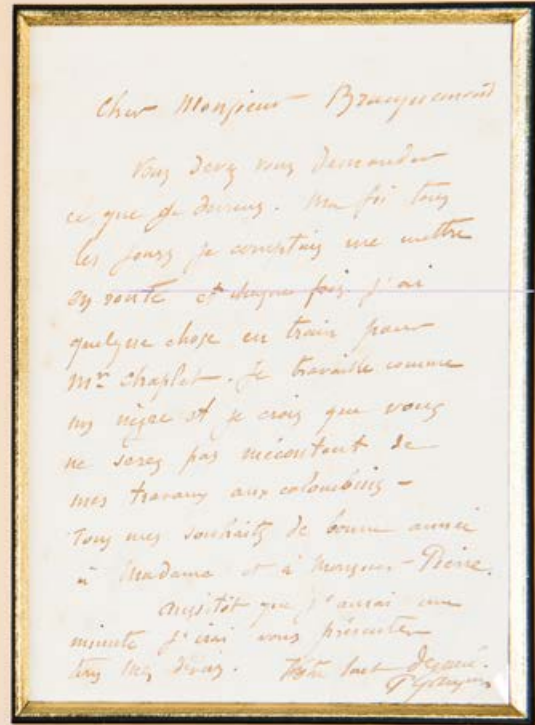 Cher Monsieur Bracquemond
Vous devez vous demander
ce que je deviens. Ma foi tous
les jours je comptais me mettre
en route et chaque fois j'ai
quelque chose en train pour
Mr Chaplet. Je travaille comme
un nègre et je crois que vous
ne serez pas mécontent de
mes travaux aux colombins -
Tous mes souhaits de bonne année
à Madame et à Monsieur - Pierre.
Aussitôt que j'aurai une
minute j'irai vous présenter
tous mes
Votre tout dévoué.
P Gauguin